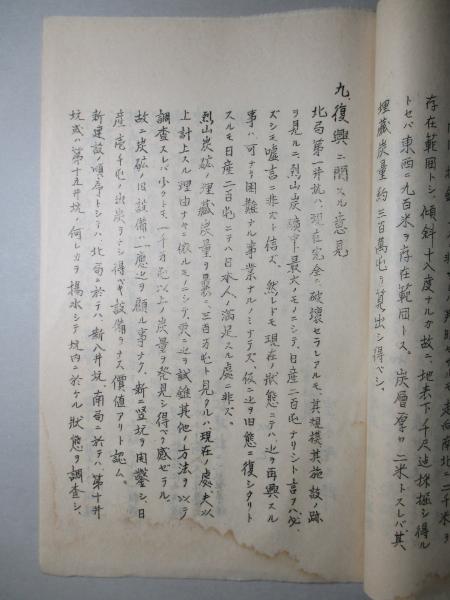 存在範囲トシ、傾斜十八度ナルガ故ニ、地表下千尺迠採掘シ得ル
トセバ東西ニ九百米ヲ存在範囲トス。炭層厚サ二米トスレバ其
埋藏炭量約三百萬屯ヲ算出シ得ベシ、
九、復興ニ関スル意見
北局第一井坑ハ、現在完全ニ破壊セラレアルモ、其規模其施設ノ跡
ヲ見ルニ、烈山炭礦中最大ノモノニシテ、日産二百屯ナリシト言フハ必
ズシモ嘘言ニ非ズト信ズ、然レドモ現在ノ状態ニテハ、之ヲ再興スル
事ハ可ナリ困難ナル事業ナルノミナラズ、仮ニ之ヲ旧態ニ復シタリト
スルモ日産二百屯ニテハ日本人ノ満足スル處ニ非ズ。
烈山炭礦ノ埋藏炭量ヲ単ニ三百万屯ト見タルハ、現在ノ處夫以
上計上スル理由ナキニ依ルモノニシテ、更ニ之ヲ試錐其他ノ方法ヲ以テ
調査スレバ少クトモ一千万屯以上ノ炭量ヲ発見シ得ベク感ゼラル、
故ニ炭砿旧設備ハ一應之ヲ顧ル事ナク、新ニ竪坑ヲ開鑿シ、日
産壱千屯ノ出炭ヲナシ得ベキ設備ヲナス價値アリト認ム。
新建設ノ順序トシテハ、北局ニ於テハ新八井坑、南局ニ於テハ第十井
坑或ハ第十五井坑ノ何レカヲ揚水シテ坑内ニ於ケル状態ヲ調査シ、